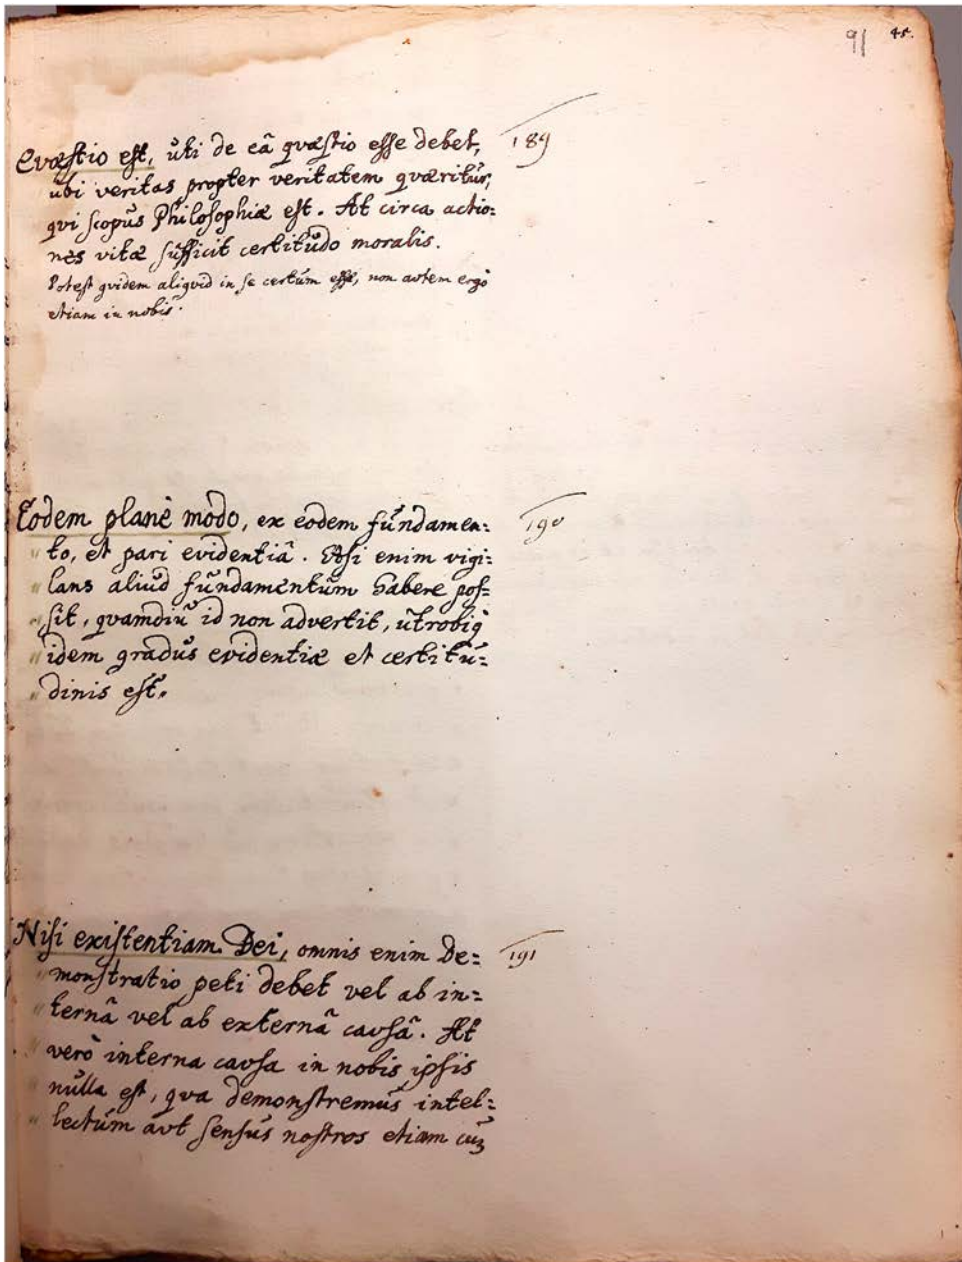 91 45.
Qvæstio est, ubi de eâ qvæstio esse debet, 189
ubi veritas propter veritatem qværitur,
qvi scopus Philosophiæ est. At circa actio=
nes vitæ sufficit certitudo moralis.
Potest qvidem aliqvid in se certum esse, non avtem ergò
etiam in nobis.
Eodem planè modo, ex eodem fundamen= 190
" to, et pari evidentiâ. Etsi enim vigi=
" lans aliud fundamentum habere pos=
" sit, qvamdiu id non advertit, utrobiq
" idem gradus evidentiæ et certitu=
" dinis est.
Nisi existentiam Dei, omnis enim De= 191
" monstratio peti debet vel ab in=
" ternâ vel ab externâ cavsâ. At
" verò interna cavsa in nobis ipsis
" nulla est, qva demonstremus intel=
" lectum avt sensus nostros etiam cuꝫ